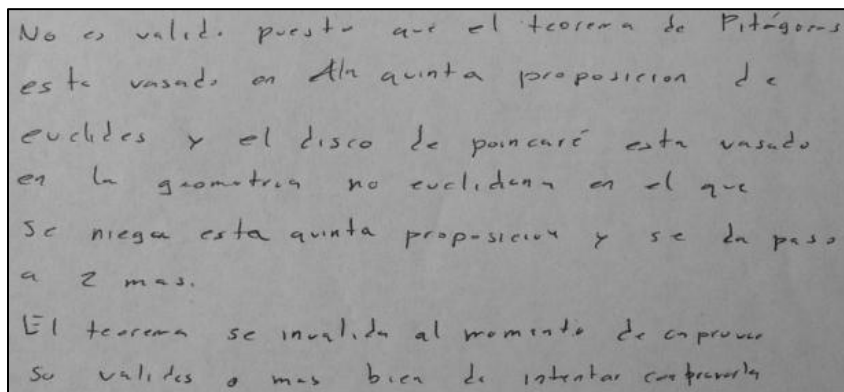 No es valido puesto que el teorema de Pitágoras
esta vasado en la quinta proposicion de
euclides y el disco de poincaré esta vasado
en la geometria no euclidena en el que
se niega esta quinta proposicion y se da paso
a 2 mas.
El teorema se invalida al momento de
su valides o mas bien de intentar comprovarla